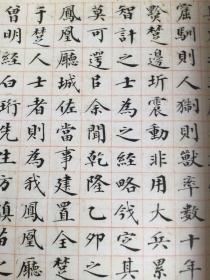 窟馴則人獗則獸率數十年
黔楚邊圻震動非用大兵累
智計之士為之經略戡定其
莫可遏已余聞乾隆乙卯之
鳳凰廳城佐當事建置全楚
于楚人士者則為我鳳凰廳
曾明經白珩先生方滇苗之